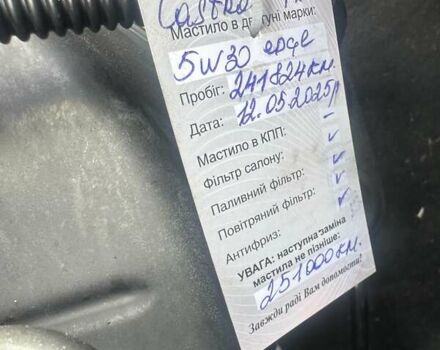 Castrol
Мастило в двигуні марки:
5W30 EDGE
Пробіг: 241824 км.
Дата: 12.05.2025р
Мастило в КПП: –
Фільтр салону: ✓
Паливний фільтр: ✓
Повітряний фільтр: ✓
Антифриз: ✓
УВАГА: наступна заміна
мастила не пізніше:
251000 км.
Завжди раді Вам допомогти!